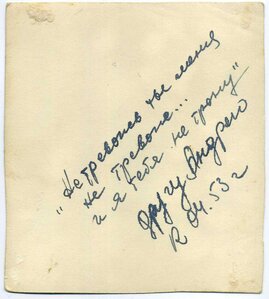 "Не тревожь ты меня
не тревожь...
и я тебя не трону"
другу Андрею
04.53 г